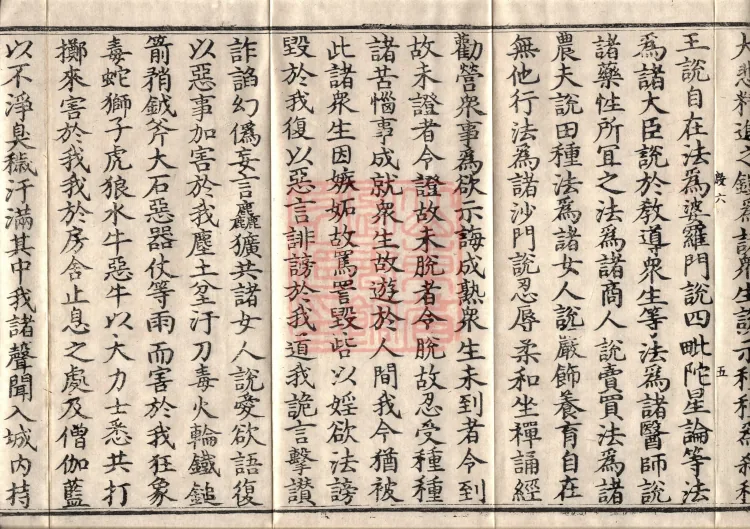 精進之鎧爲諸衆生說示種種爲
六
五
王說自在法爲婆羅門說四毗陀星論等法
爲諸大臣說於敎導衆生等法爲諸醫師說
諸藥性所冝之法爲諸商人說賣買法爲諸
農夫說田種法爲諸女人說嚴飾養育自在
無他行法爲諸沙門說忍辱柔和坐禪誦經
勸營衆事爲欲示誨成熟衆生未到者令到
故未證者令證故未脫者令脫故忍受種種
諸苦惱事成就衆生故遊於人間我今猶被
此諸衆生因嫉妬故罵詈毀呰以婬欲法謗
毀於我復以惡言誹謗於我道我詭言擊讚
詐諂幻僞妄言麤獷共諸女人說愛欲語復
以惡事加害於我塵土坌汙刀毒火輪鐵鎚
箭矟鉞斧大石惡器仗等雨而害於我狂象
毒蛇獅子虎狼水牛惡牛以大力士悉共打
擲來害於我我於房舍止息之處及僧伽藍
以不淨臭穢汙滿其中我諸聲聞入城內持